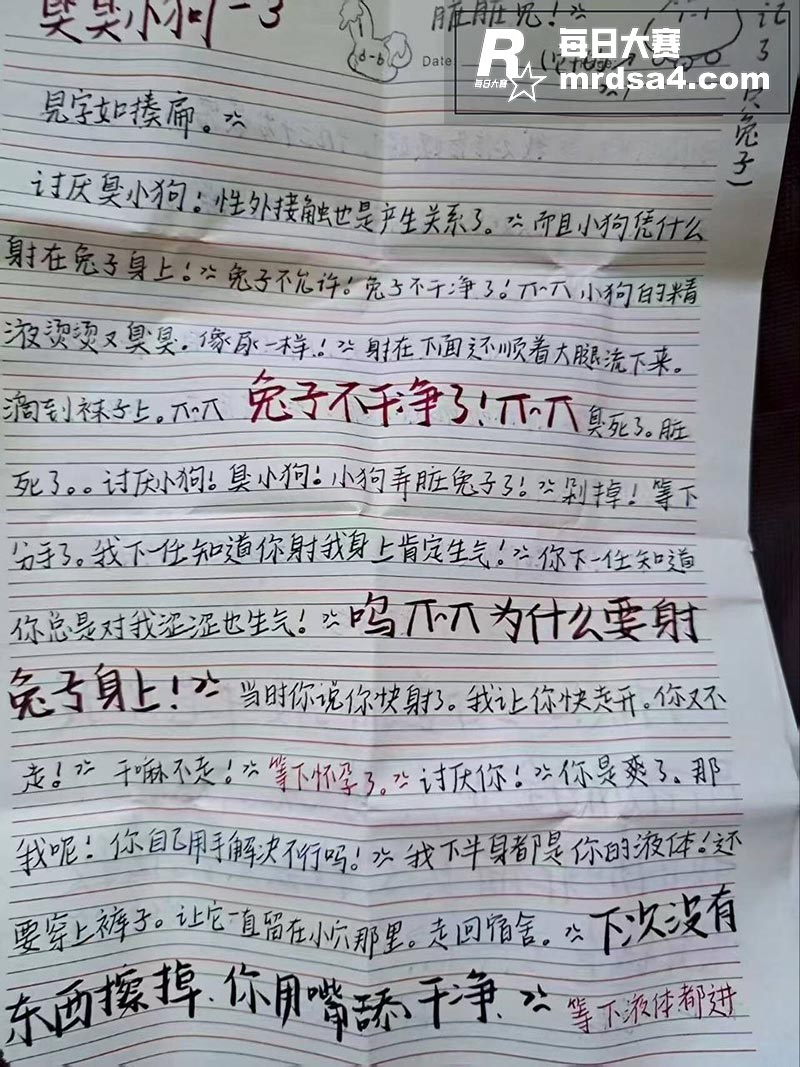 臭臭小狗-3
脏脏兔！
d-b
Date
R 每日大赛
每日大赛 mrdsa4.com
兔子）
见字如揍扁。
讨厌臭小狗！性外接触也是产生关系了。而且小狗凭什么
射在兔子身上！兔子不允许！兔子不干净了！π~π 小狗的精
液烫烫又臭臭。像尿一样！射在下面还顺着大腿流下来。
滴到袜子上。π~π 兔子不干净了！π~π 臭死了。脏
死了。。讨厌小狗！臭小狗！小狗弄脏兔子了！剁掉！等下
分手了。我下一任知道你射我身上肯定生气！你下一任知道
你总是对我涩涩也生气！呜 π~π 为什么要射
兔子身上！当时你说你快射了。我让你快走开。你又不
走！干嘛不走！等下怀孕了。讨厌你！你是爽了。那
我呢！你自己用手解决不行吗！我下半身都是你的液体！还
要穿上裤子。让它一直留在小穴那里。走回宿舍。下次没有
东西擦掉、你用嘴舔干净、等下液体都进